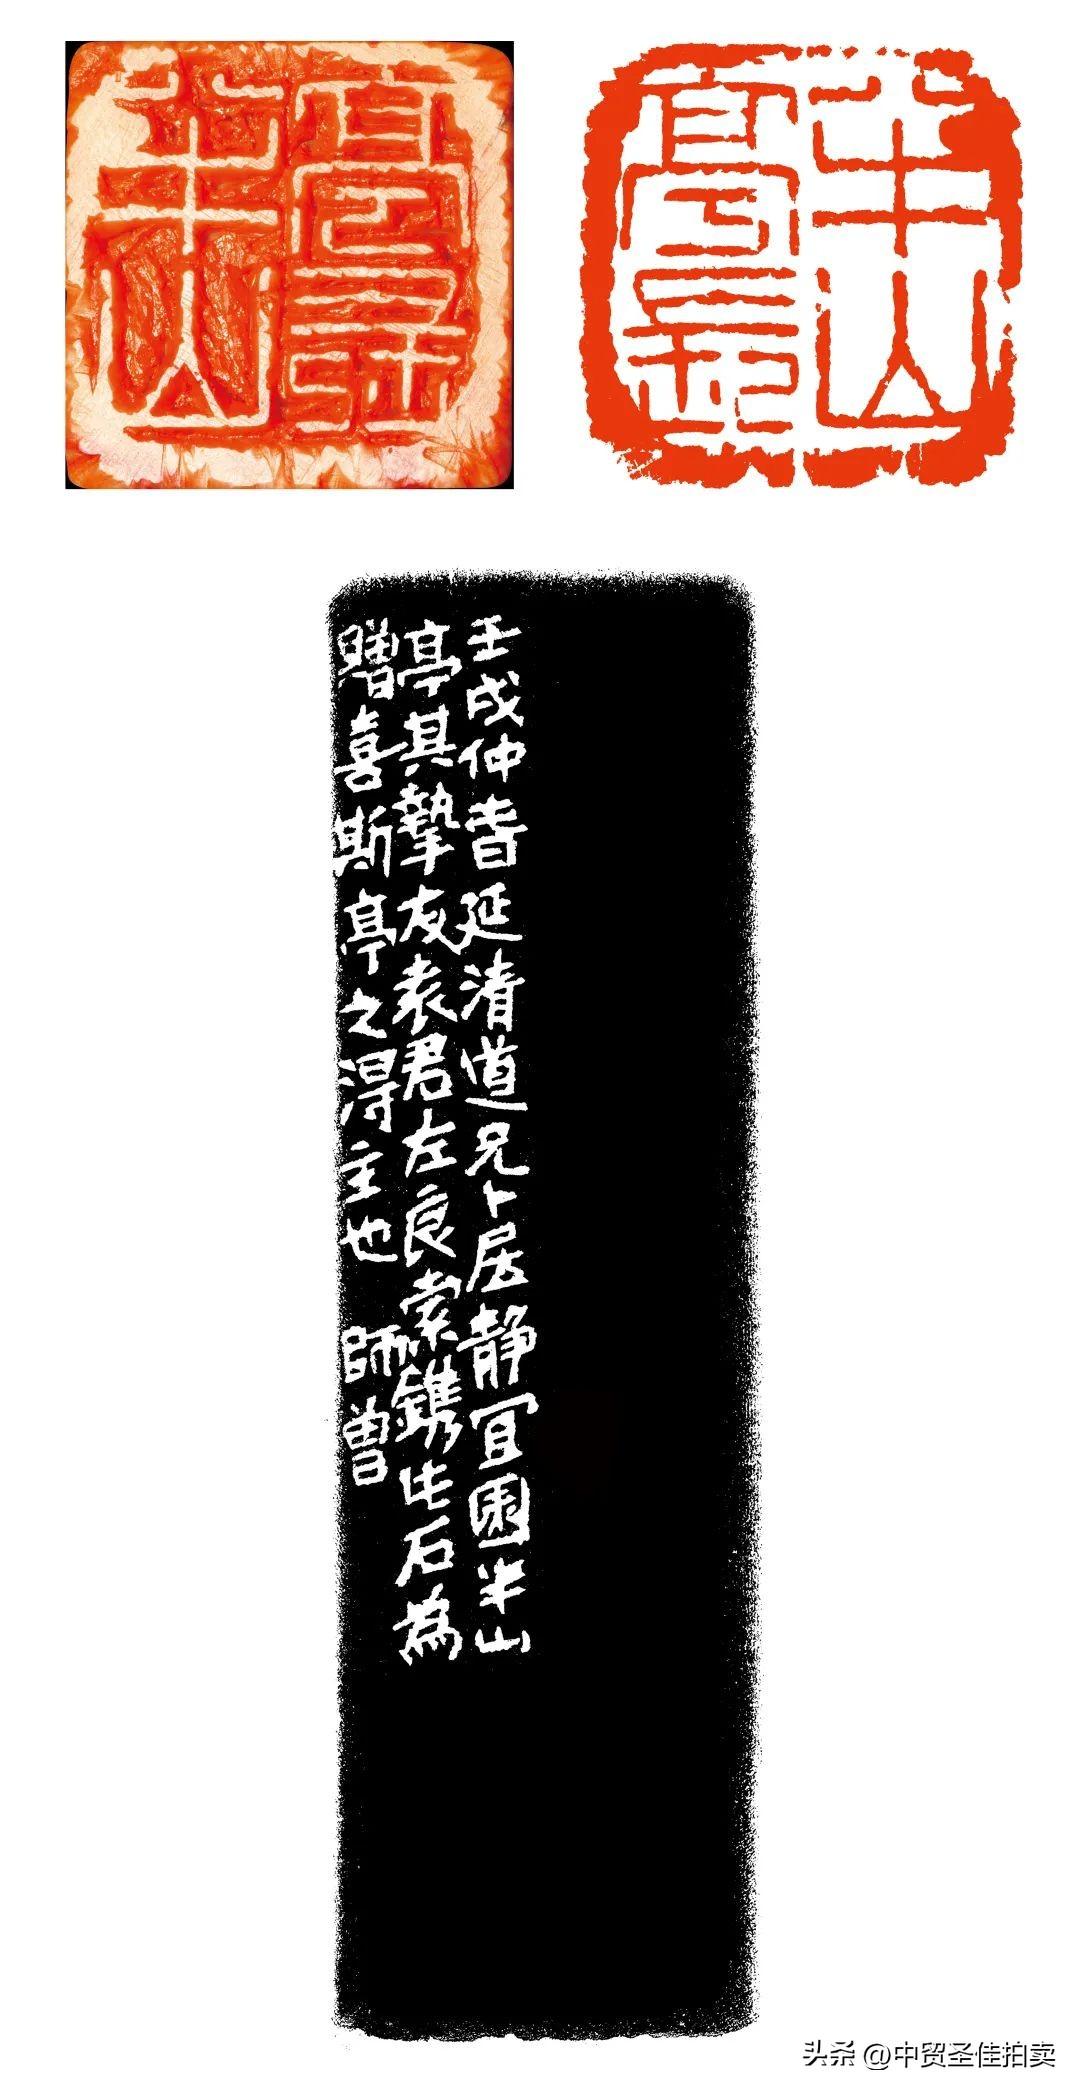 半山
壬戌仲春延清道兄卜居静宜園半山
亭其摯友袁君左良索鐫此石為
贈喜斯亭之得主也 師曾
头条 @中贸圣佳拍卖